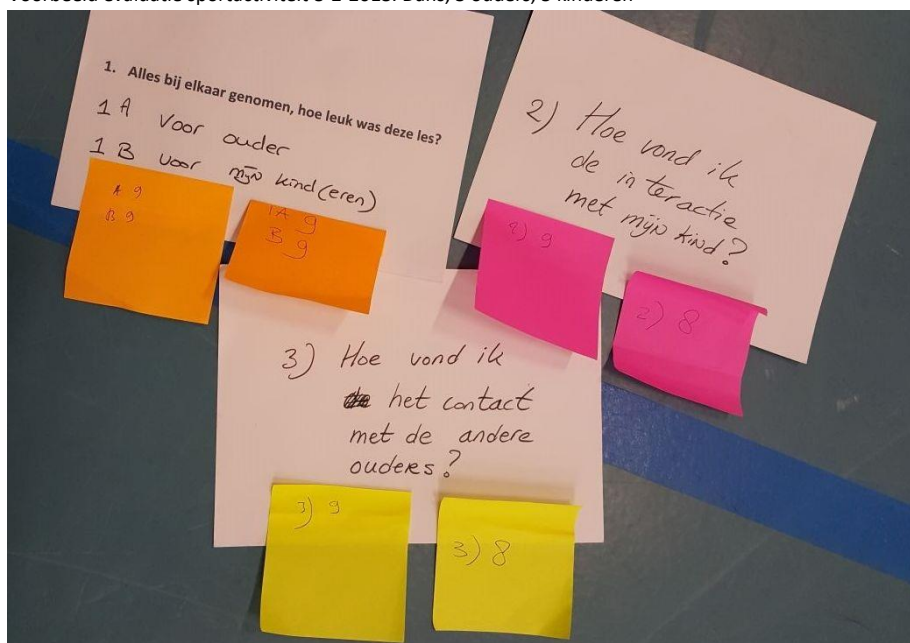 1. Alles bij elkaar genomen, hoe leuk was deze les?
1 A Voor ouder
1 B voor mijn kind(eren)
A 9
B 9
1A 9
B 9
2) Hoe vond ik
de interactie
met mijn kind?
2) 9
2) 8
3) Hoe vond ik
het contact
met de andere
ouders?
3) 9
3) 8